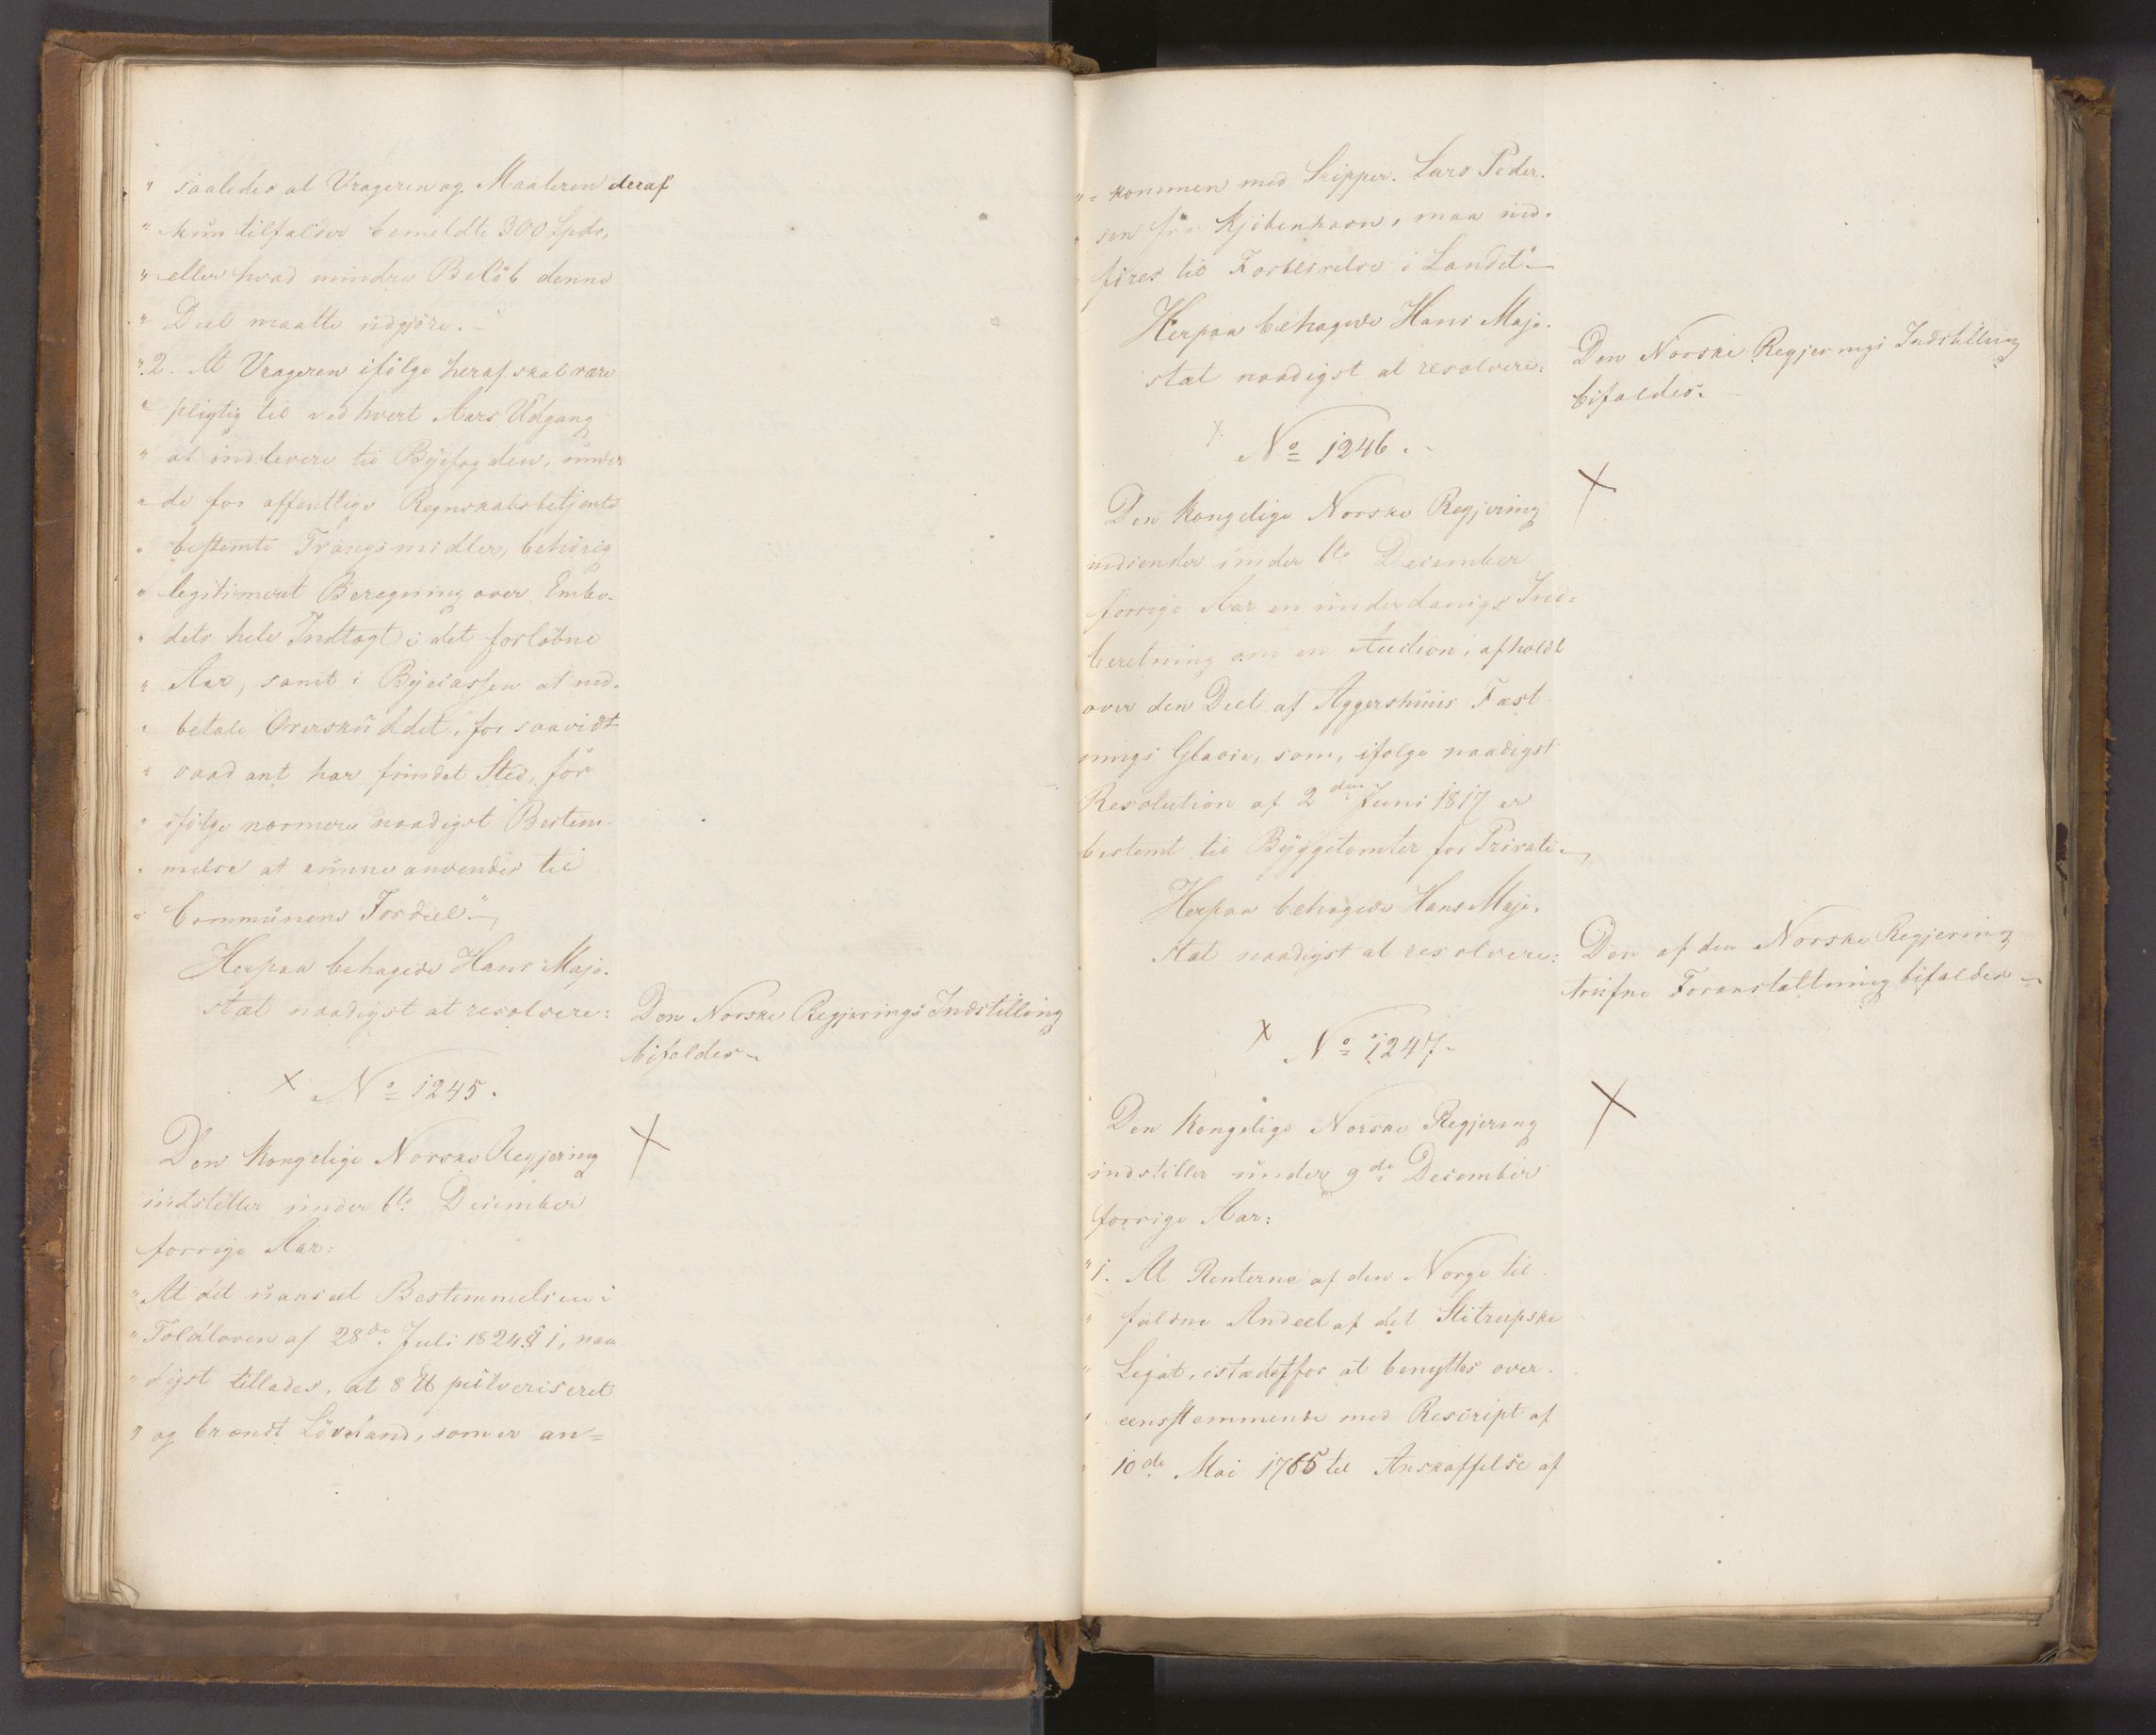 " saaledes at Vrageren og Maaleren deraf
" kun tilfalder bemeldte 300 Spdr,
" eller hvad mindre Beløb denne
" Deel maatte udgjøre.—
" 2. At Vrageren ifølge heraf skal være
" pligtig til ved hvert Aars Udgang
" at indlevere til Byefogden, under
" de for offentlige Regnskabsbetjente
" bestemte Tvangsmidler, behørig
" legitimeret Beregning over Embe-
" dets hele Indtægt i det forløbne
" Aar, samt i Byecassen at ind-
" betale Overskuddet, for saavidt
" saadant har fundet Sted, for
" ifølge nærmere naadigst Bestem-
" melse at kunne anvendes til
" Communens Fordeel."—
Herpaa behagede Hans Maje-
stæt naadigst at resolvere:
Den Norske Regjerings Indstilling
bifaldes.—
x No 1245.
Den kongelige Norske Regjering
indstiller under 6te December
forrige Aar:
" At det uanseet Bestemmelsen i
" Toldloven af 28de Juli 1824 § 1, naa
" digst tillades, at 8 ℔ pulveriseret
" og brændt , som er an=
"= kommen med Skipper Lars Peder-
" sen fra Kjøbenhavn, maa ind-
" føres til Fortoldelse i Landet"—
Herpaa behagede Hans Maje-
stæt naadigst at resolvere:
Den Norske Regjerings Indstilling
bifaldes.—
x No 1246.
Den kongelige Norske Regjering
indsender under 6te December
forrige Aar en underdanigst Ind-
beretning om en Auction, afholdt
over den Deel af Aggershuus Fæst-
nings Glacie, som, ifølge naadigst
Resolution af 2den Juni 1817 er
bestemt til Byggetomter for Private.—
Herpaa behagede Hans Maje-
stæt naadigst at resolvere:
Den af den Norske Regjering
trufne Foranstaltning bifaldes.—
x No 1247.
Den kongelige Norske Regjering
indstiller under 9de December
forrige Aar:
" 1. At Renterne af den Norge til-
" faldne Andeel af det Stitrupske
" Legat, istædetfor at benyttes over-
" eensstemmende med Rescript af
" 10de Mai 1765 til Anskaffelse af